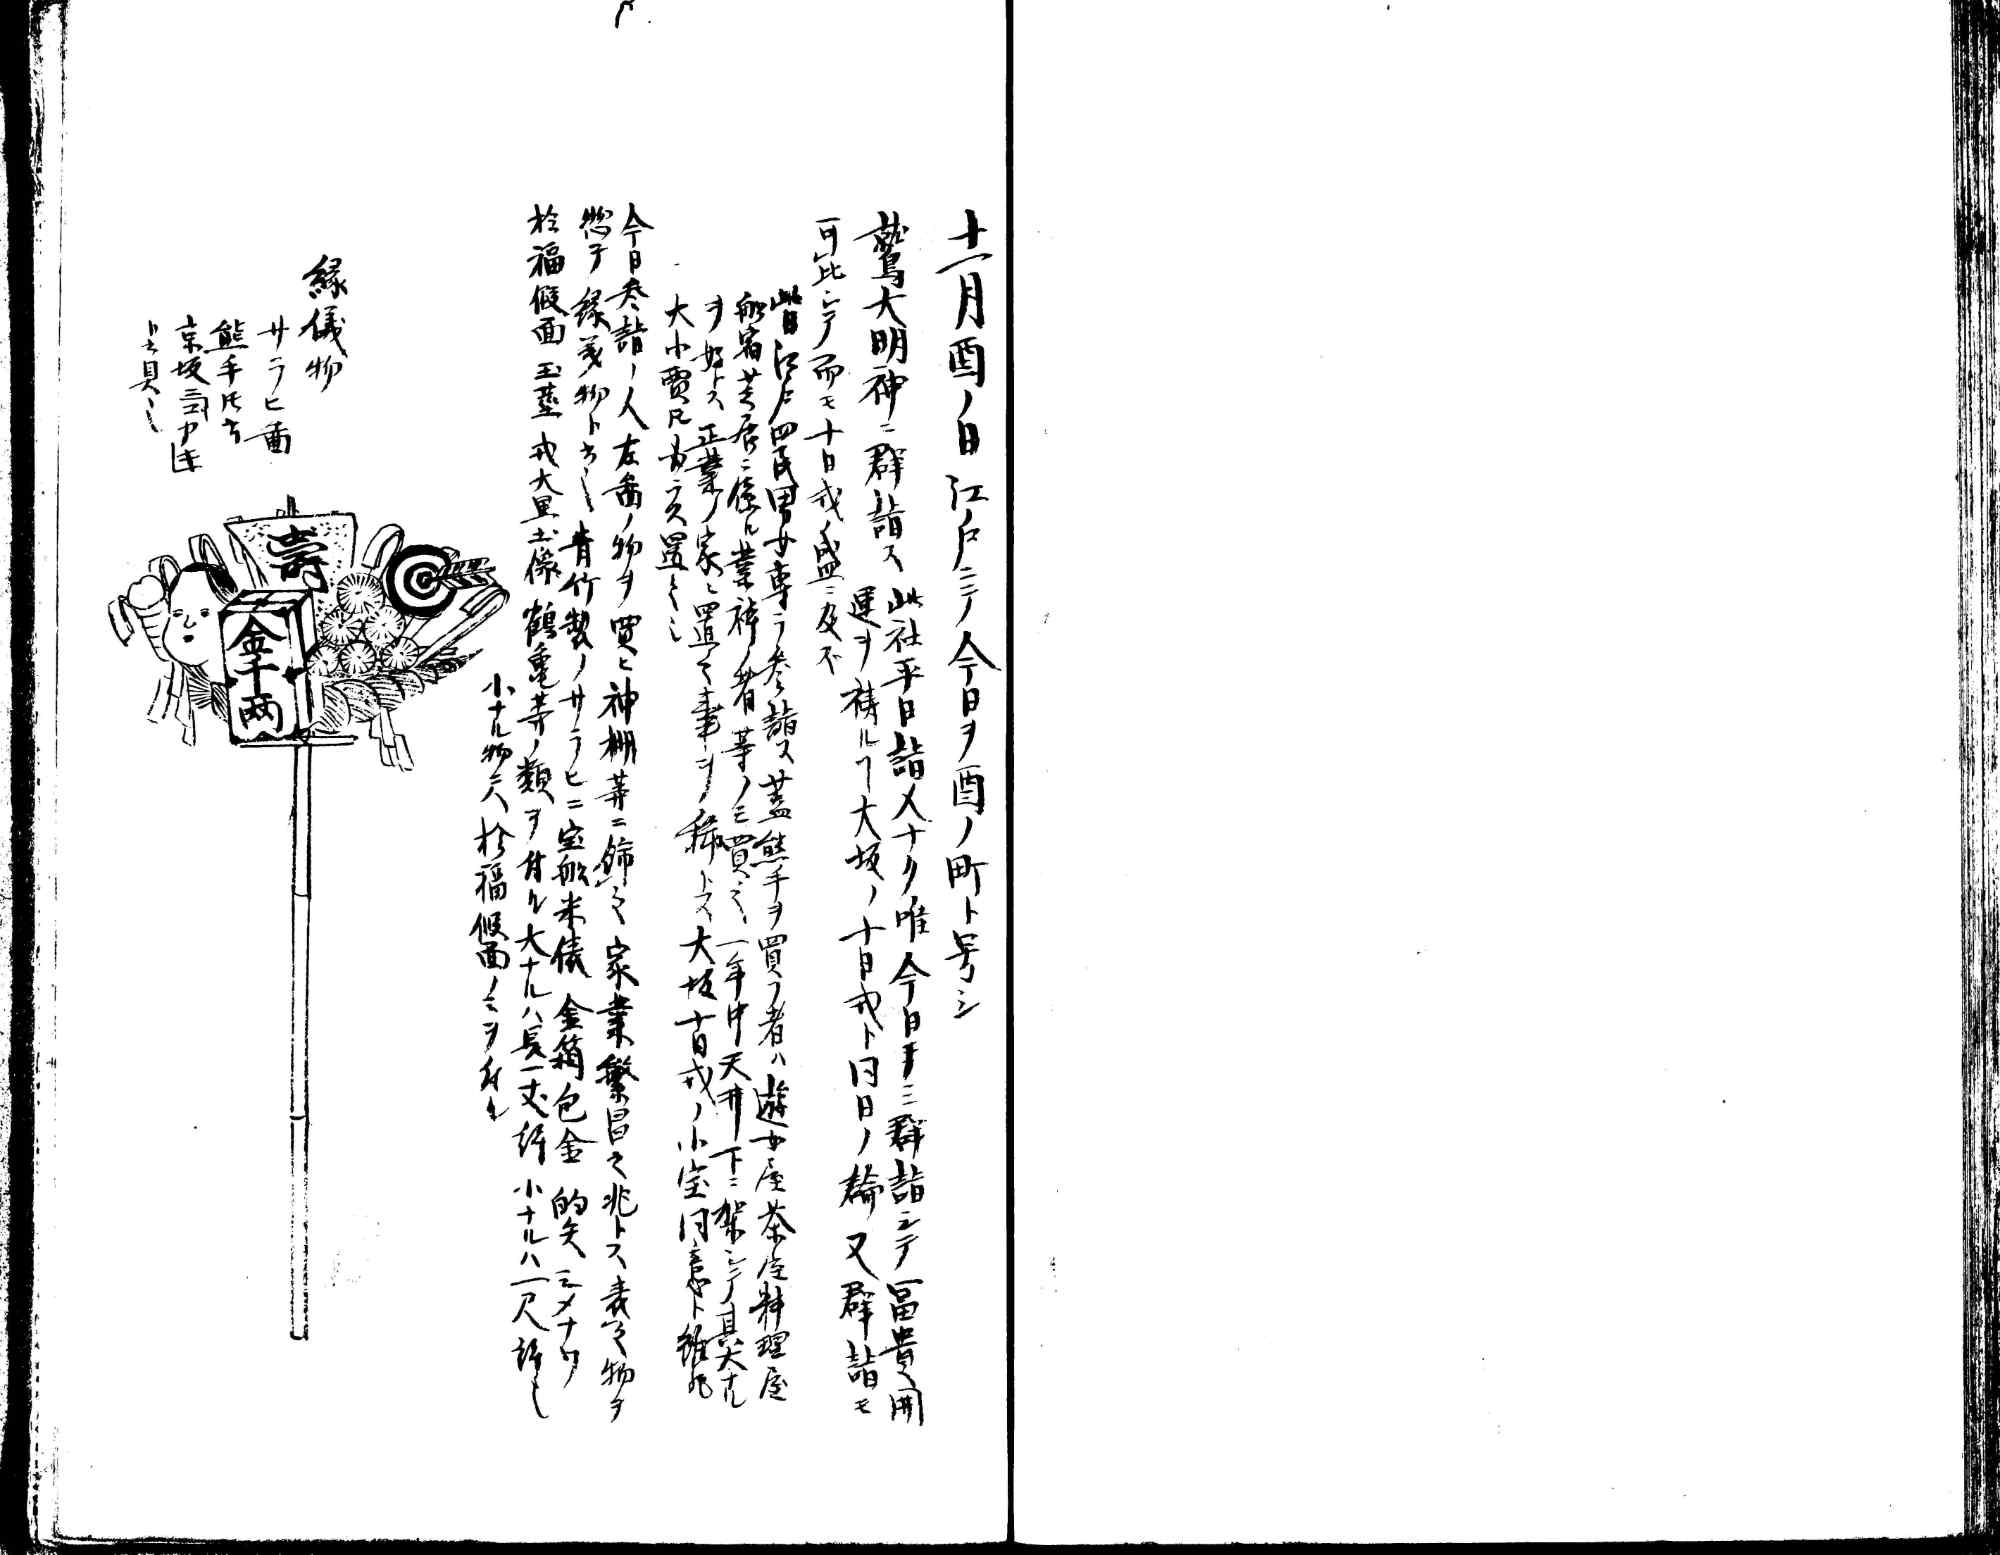 十一月酉ノ日江戸ニテ今日ヲ酉ノ町ト号シ
鷲大明神ニ群詣ス此社平日詣人ナク唯今日ノミ群詣シテ冨貴開
運ヲ祷ルコト大坂ノ十日戎ト同日ノ論又群詣モ
可比シテ而モ十日戎ノ盛ニ及ズ
此日江戸四民男女専ラ参詣ス蓋熊手ヲ買フ者ハ遊女屋茶屋料理屋
舩宿芝居ニ係ル業体ノ者等ノミ買之一年中天井下ニ架シテ其大ナル
ヲ好トス正業ノ家ニ置之事ヲ稀トス大坂十日戎ノ小宝同意ト雖ドモ
大小賈トモ
今日参詣ノ人左図ノ物ヲ買ヒ神棚等ニ飾之家業繁昌之兆トス表之物ヲ
惣テ縁義物ト云也青竹製ノサラヒニ宝舩米俵金箱包金的矢シメナワ
於福假面玉茎戎大黒土像鶴亀等ノ類ヲ付ル大ナルハ長一丈許小ナルハ一尺許也
小ナル物ニハ於福假面ノミヲ付ル
縁儀物
サラヒ圖
熊手トモ云
京坂ニ云
寿
金千両